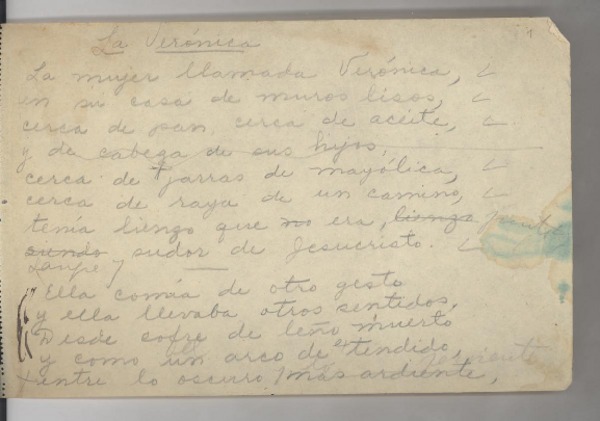 1
La Verónica
La mujer llamada Verónica,
en su casa de muros lisos,
cerca de pan, cerca de aceite,
y de cabeza de sus hijos,
cerca de jarras de mayólica,
cerca de raya de un camino,
tenía lienzo que no era, lienzo
siendo sudor de Jesucristo.
sangre y
Ella comía de otro gesto
y ella llevaba otros sentidos,
Desde cofre de leño muerto
y como un arco de tendido
entre lo oscuro, más ardiente,